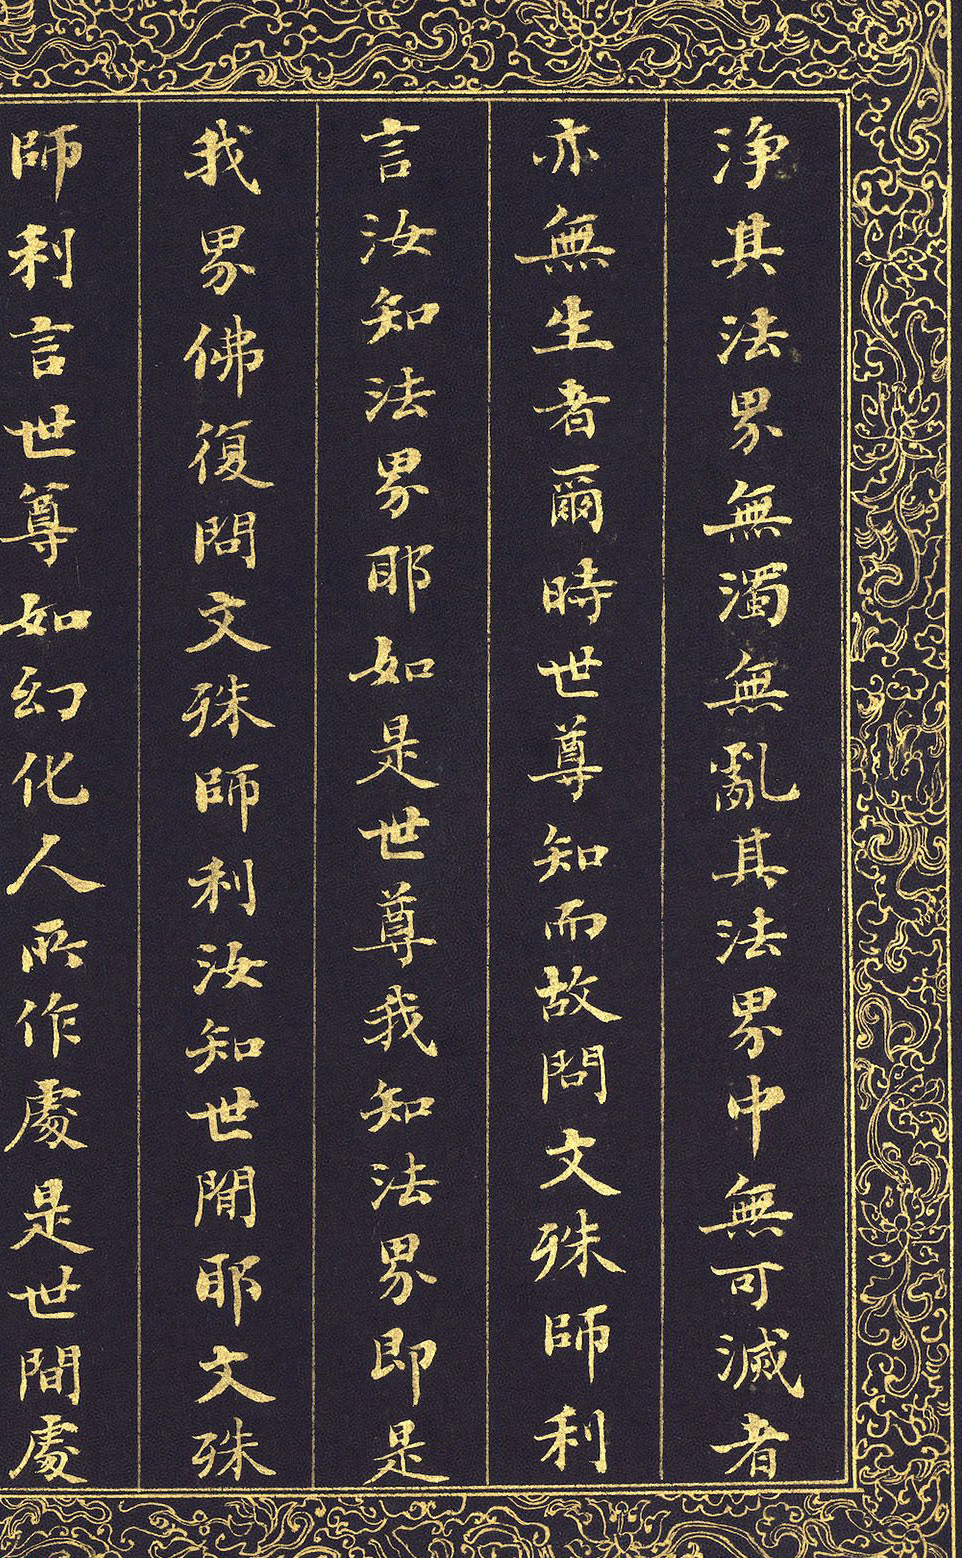 浄其法界無濁無亂其法界中無可滅者
亦無生者爾時世尊知而故問文殊師利
言汝知法界耶如是世尊我知法界即是
我界佛復問文殊師利汝知世間耶文殊
師利言世尊如幻化人所作處是世間處